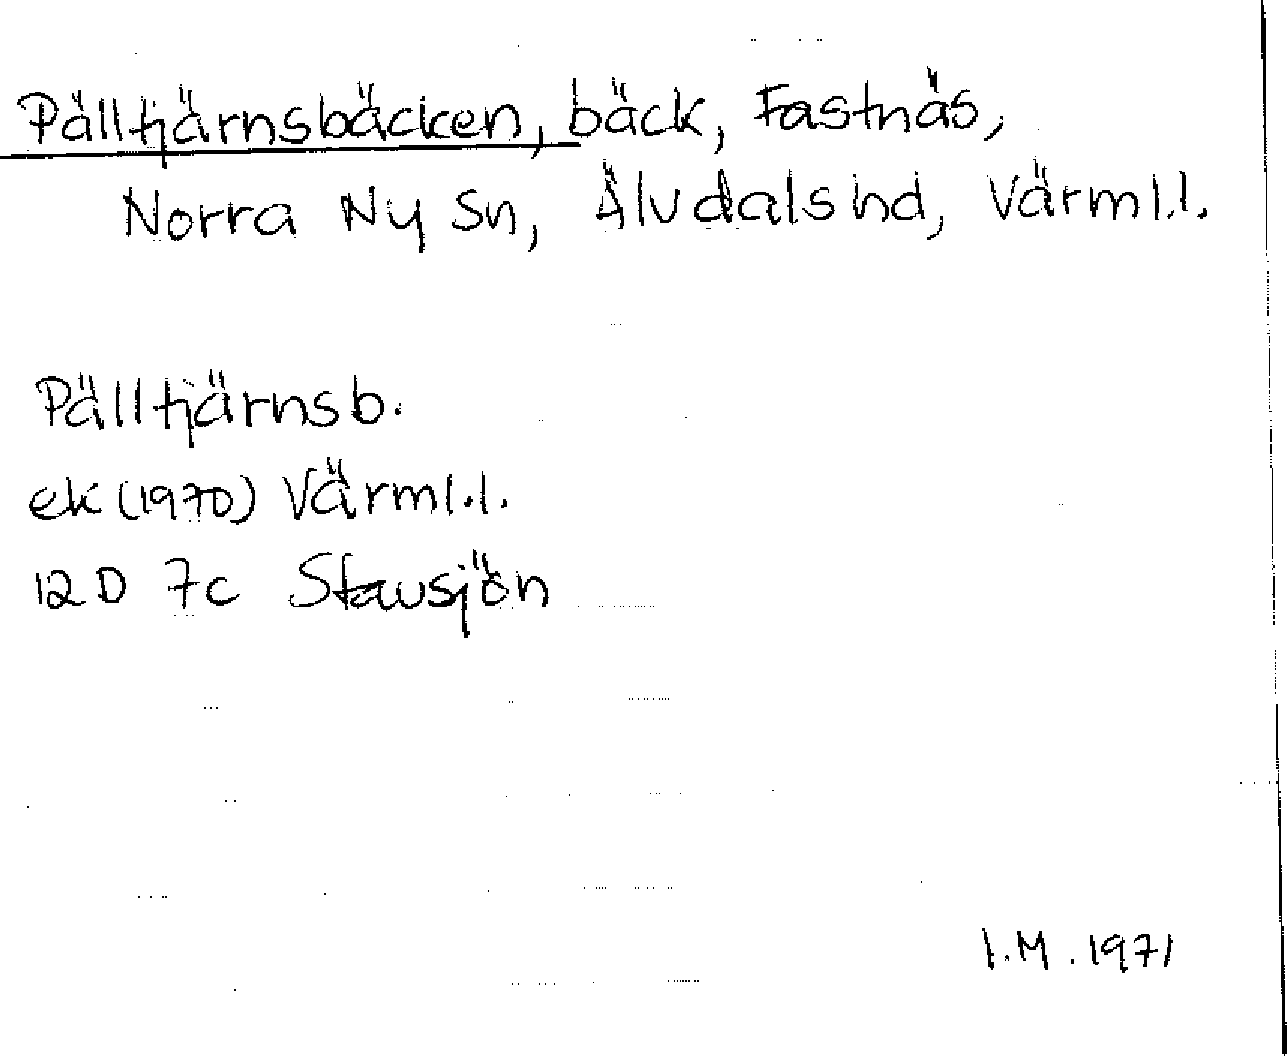 Pälltjärnsbäcken, bäck, Fastnäs,
Norra Ny Sn, Älvdals hd, Värml.l.
Pälltjärnsb.
ek (1970) Värml.l.
12 D 7c Stausjön
I.M. 1971